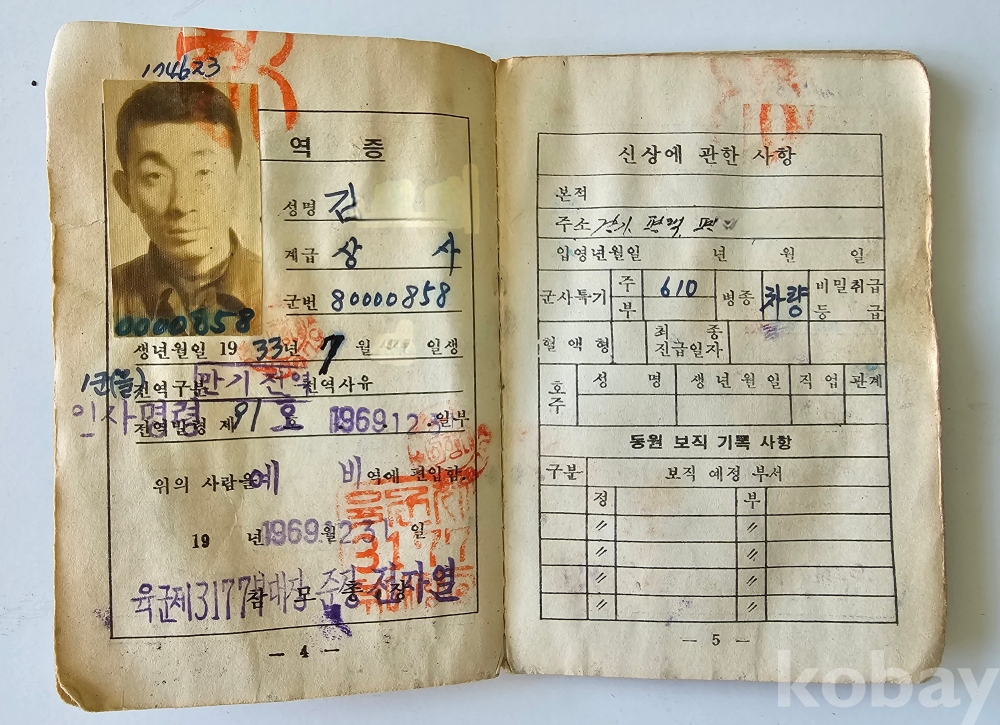 174623
역 증
성명 김
계급 상 사
군번 80000858
0000858
생년월일 1933년 7월 일생
전역구분 만기전역 전역사유
인사명령
전역발령 제 91호 1969.12.31.일부
위의 사람을 예비역에 편입함.
19 년 1969월 12.31 일
육군제3177부대장
참모총장
3177
— 4 —
신상에 관한 사항
본적
주소 경기 평택
입영년월일 년 월 일
군사특기 주 610 부 병종 차량 비밀취급등급
혈액형 최종진급일자
호주 성명 생년월일 직업 관계
동원 보직 기록 사항
구분 보직 예정 부서
정 부
〃 〃
〃 〃
〃 〃
〃 〃
— 5 —
kobay